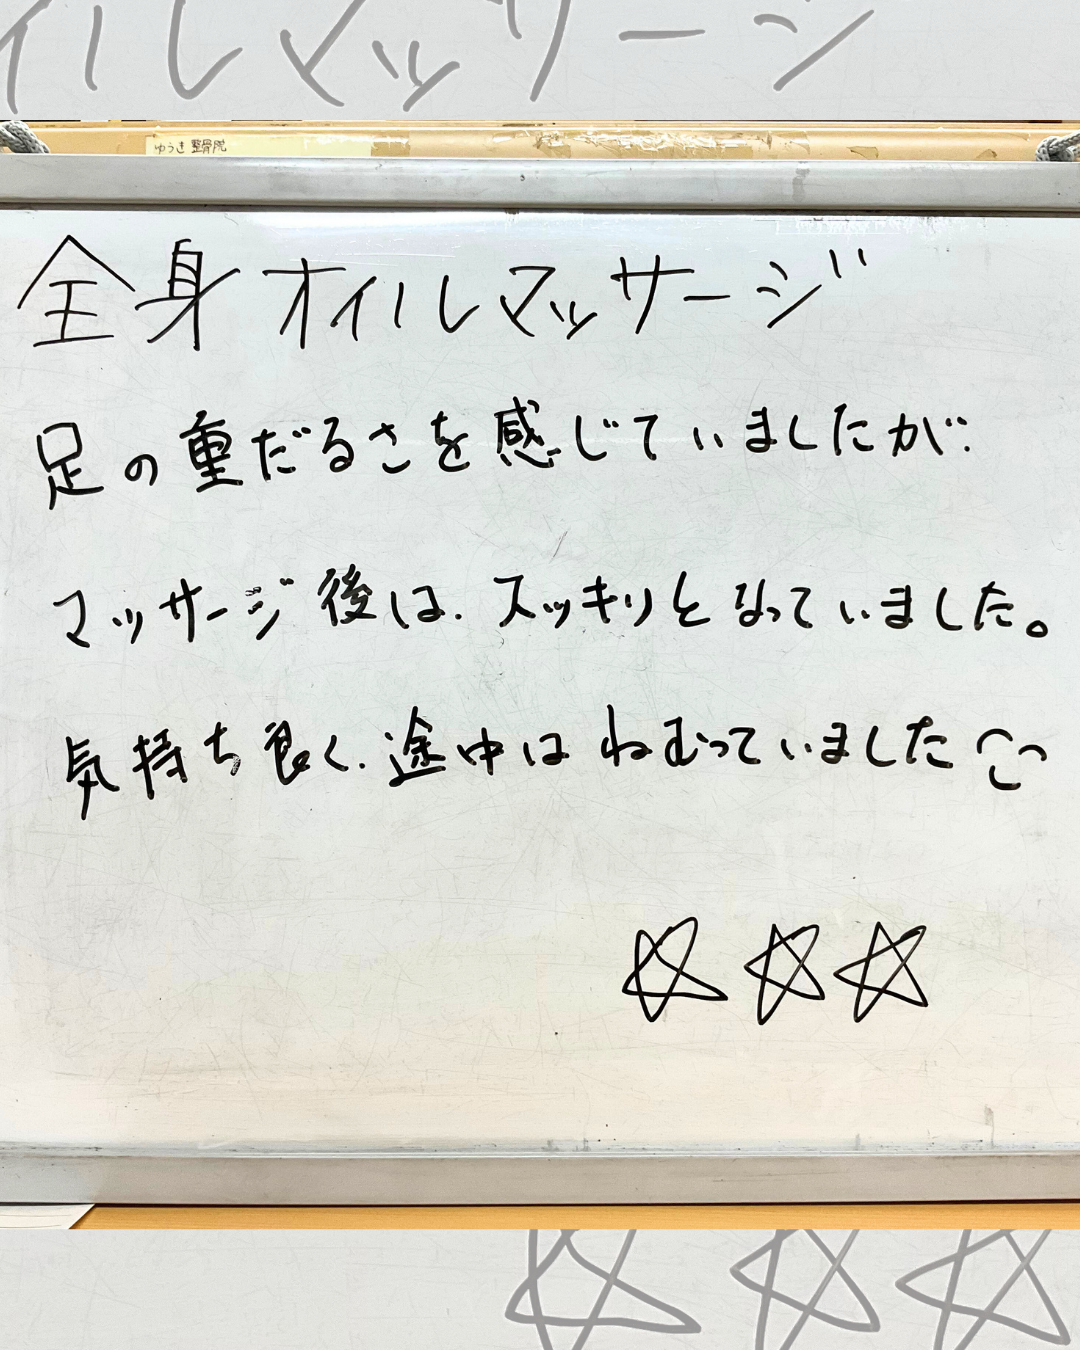 イルマッサージ
ゆうき整骨院
全身オイルマッサージ
足の重だるさを感じていましたが、
マッサージ後は、スッキリとなっていました。
気持ち良く、途中はねむっていました
☆☆☆